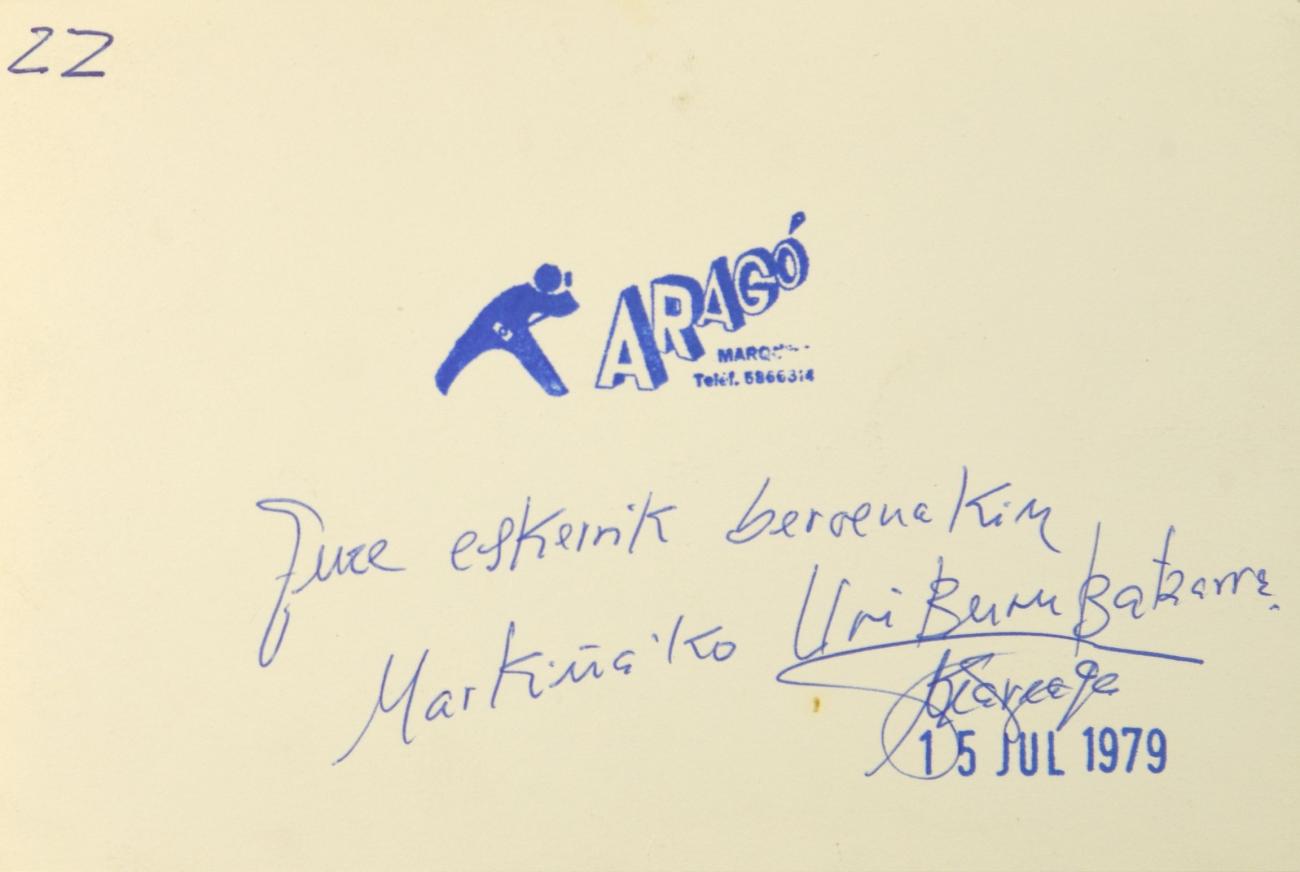 22
ARAGÓ
Teléf. 5866314
eskernik beroenakin
Markiña'ko Uri Buru Batzarra.
15 JUL 1979